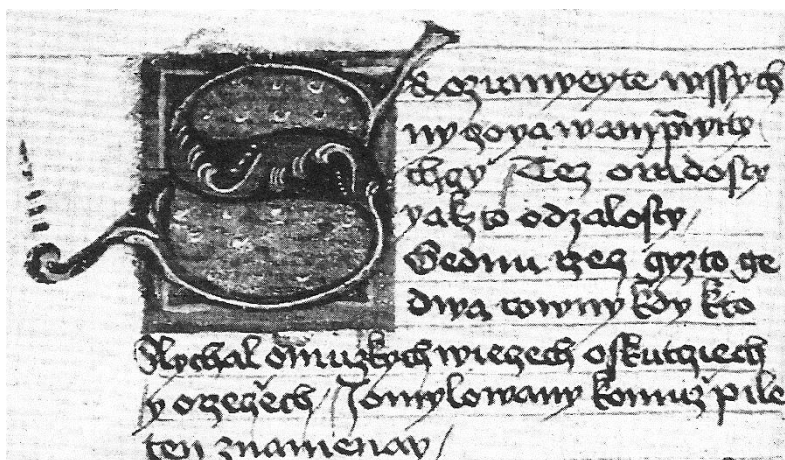 Srozumyeyte wssych
ny zoya wam
chgy / Tez o radosty
yakz to odzalosty /
Gednu rzecz gyzto ge
dwa rowny kdy kto
Slychal o muzkych wieczech oskutciech
y orzeczech / Jomylowany komuz pile
ten znamenay /